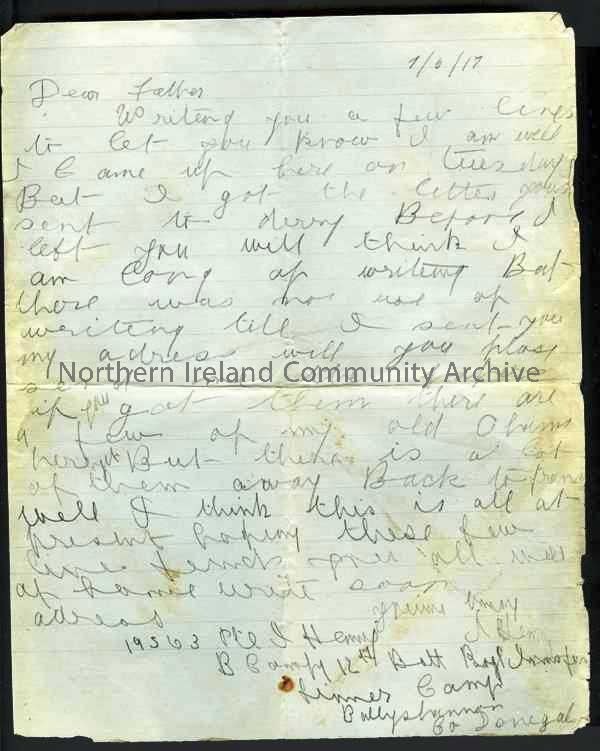 7/6/17
Dear Father
Writing you a few lines
to let you know I am well
I Came up here on tuesday
But I got the letter you
sent to derry Before I
left you will think I
am long of writing But
there was not use of
writing till I sent you
my adress will you please
Northern Ireland Community Archive
if you got them there are
a few of my old Chums
here yet But there is a lot
of them away Back to france
well I think this is all at
present hoping these few
lines finds you all well
at home write soon
adress
yours truly
19563 Pte J Henry J Henry
B Compy 12th Batt Royl Innis
Finner Camp
Ballyshannon
Co Donegal